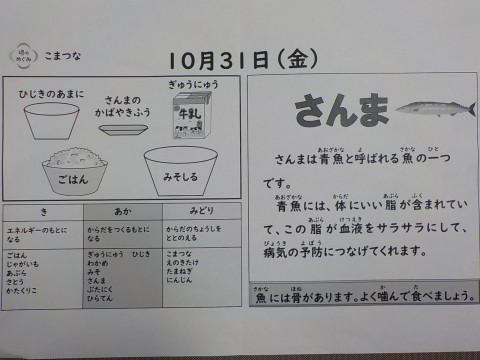 堺のめぐみ
こまつな
10月31日(金)
ひじきのあまに
さんまの
かばやきふう
ぎゅうにゅう
牛乳
ごはん
みそしる
き
あか
みどり
エネルギーのもとに
なる
からだをつくるもとに
なる
からだのちょうしを
ととのえる
ごはん
じゃがいも
あぶら
さとう
かたくりこ
ぎゅうにゅう ひじき
わかめ
みそ
さんま
ぶたにく
ひらてん
こまつな
えのきたけ
たまねぎ
にんじん
さんま
さんまは青魚と呼ばれる魚の一つ
です。
青魚には、体にいい脂が含まれてい
て、この脂が血液をサラサラにして、
病気の予防につなげてくれます。
魚には骨があります。よく噛んで食べましょう。